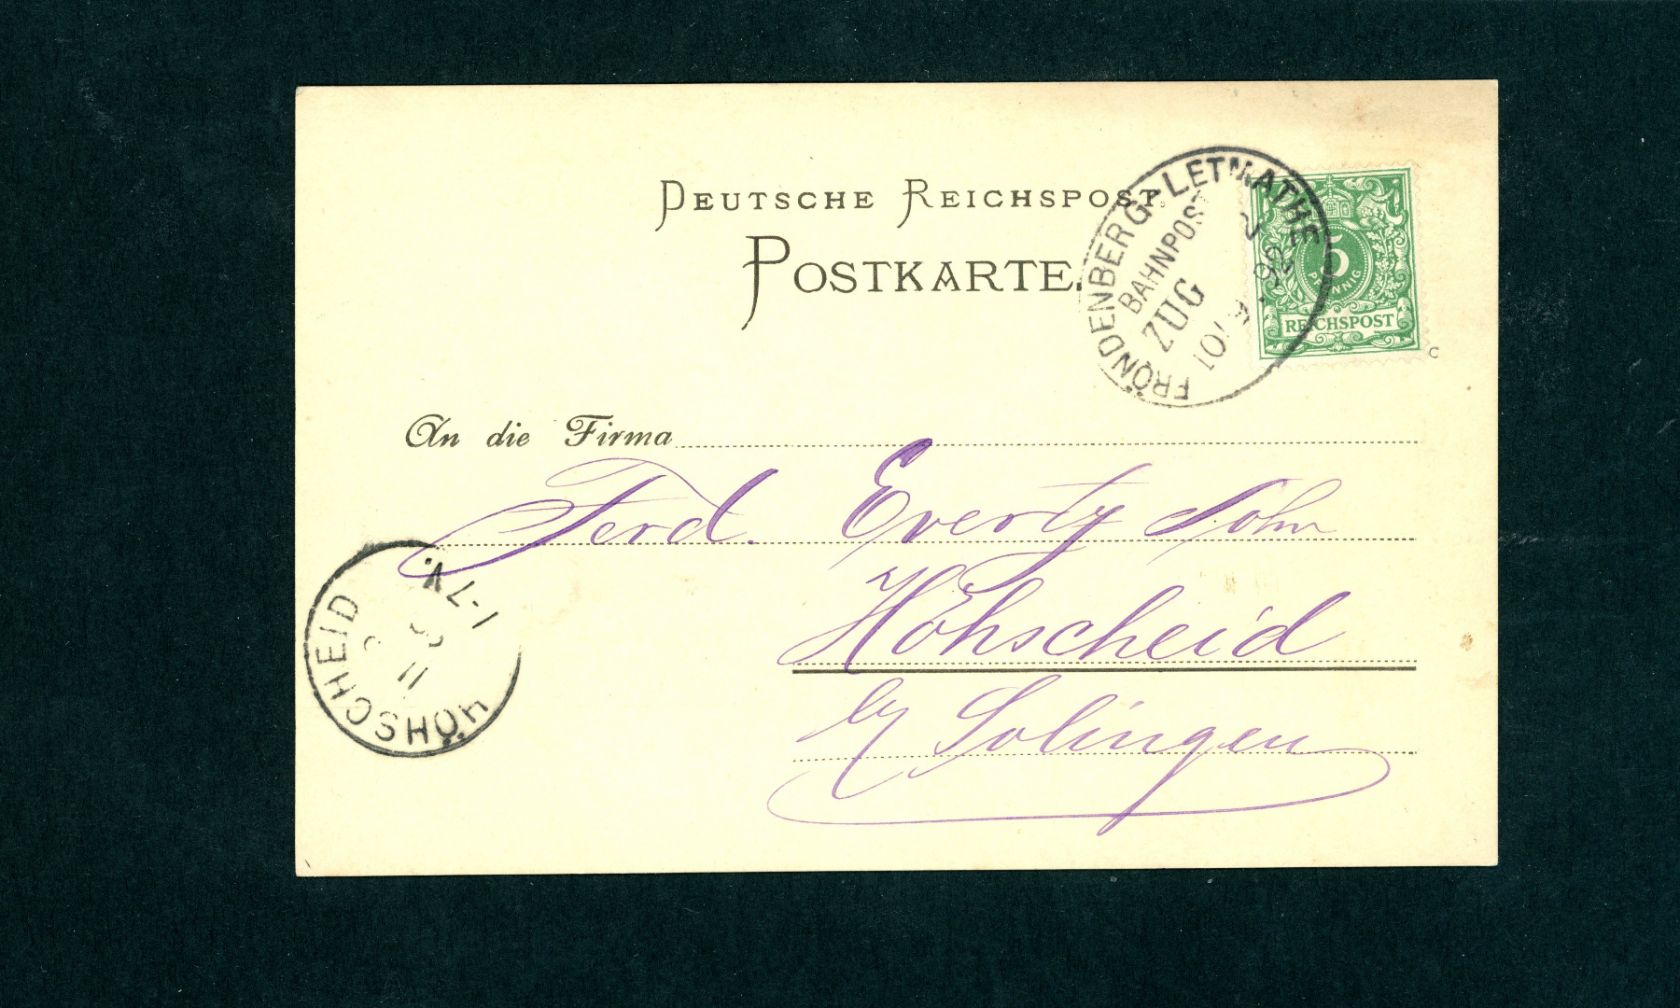 DEUTSCHE REICHSPOST
POSTKARTE.
FRÖNDENBERG-LETMATHE
BAHNPOST
ZUG
10/
5
PFENNIG
REICHSPOST
C
An die Firma
Ferd. Evertz Sohn
Höhscheid
b/ Solingen
HÖHSCHEID
11
1-7V.